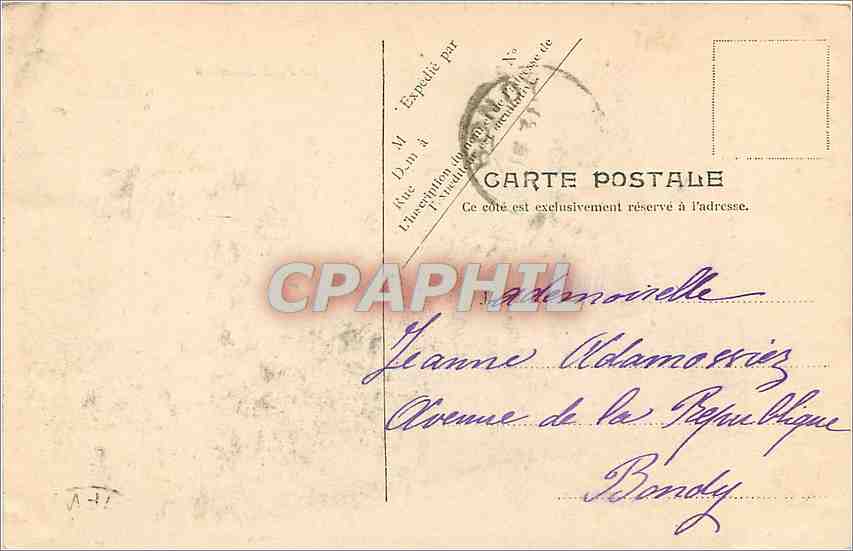 Expédié par
M
D-m à
Rue Nº
L'inscription du nom et de l'adresse de
l'Expéditeur est facultative.
CARTE POSTALE
Ce côté est exclusivement réservé à l'adresse.
CPAPHIL
Mademoiselle
Jeanne
Avenue de la République
Bondy